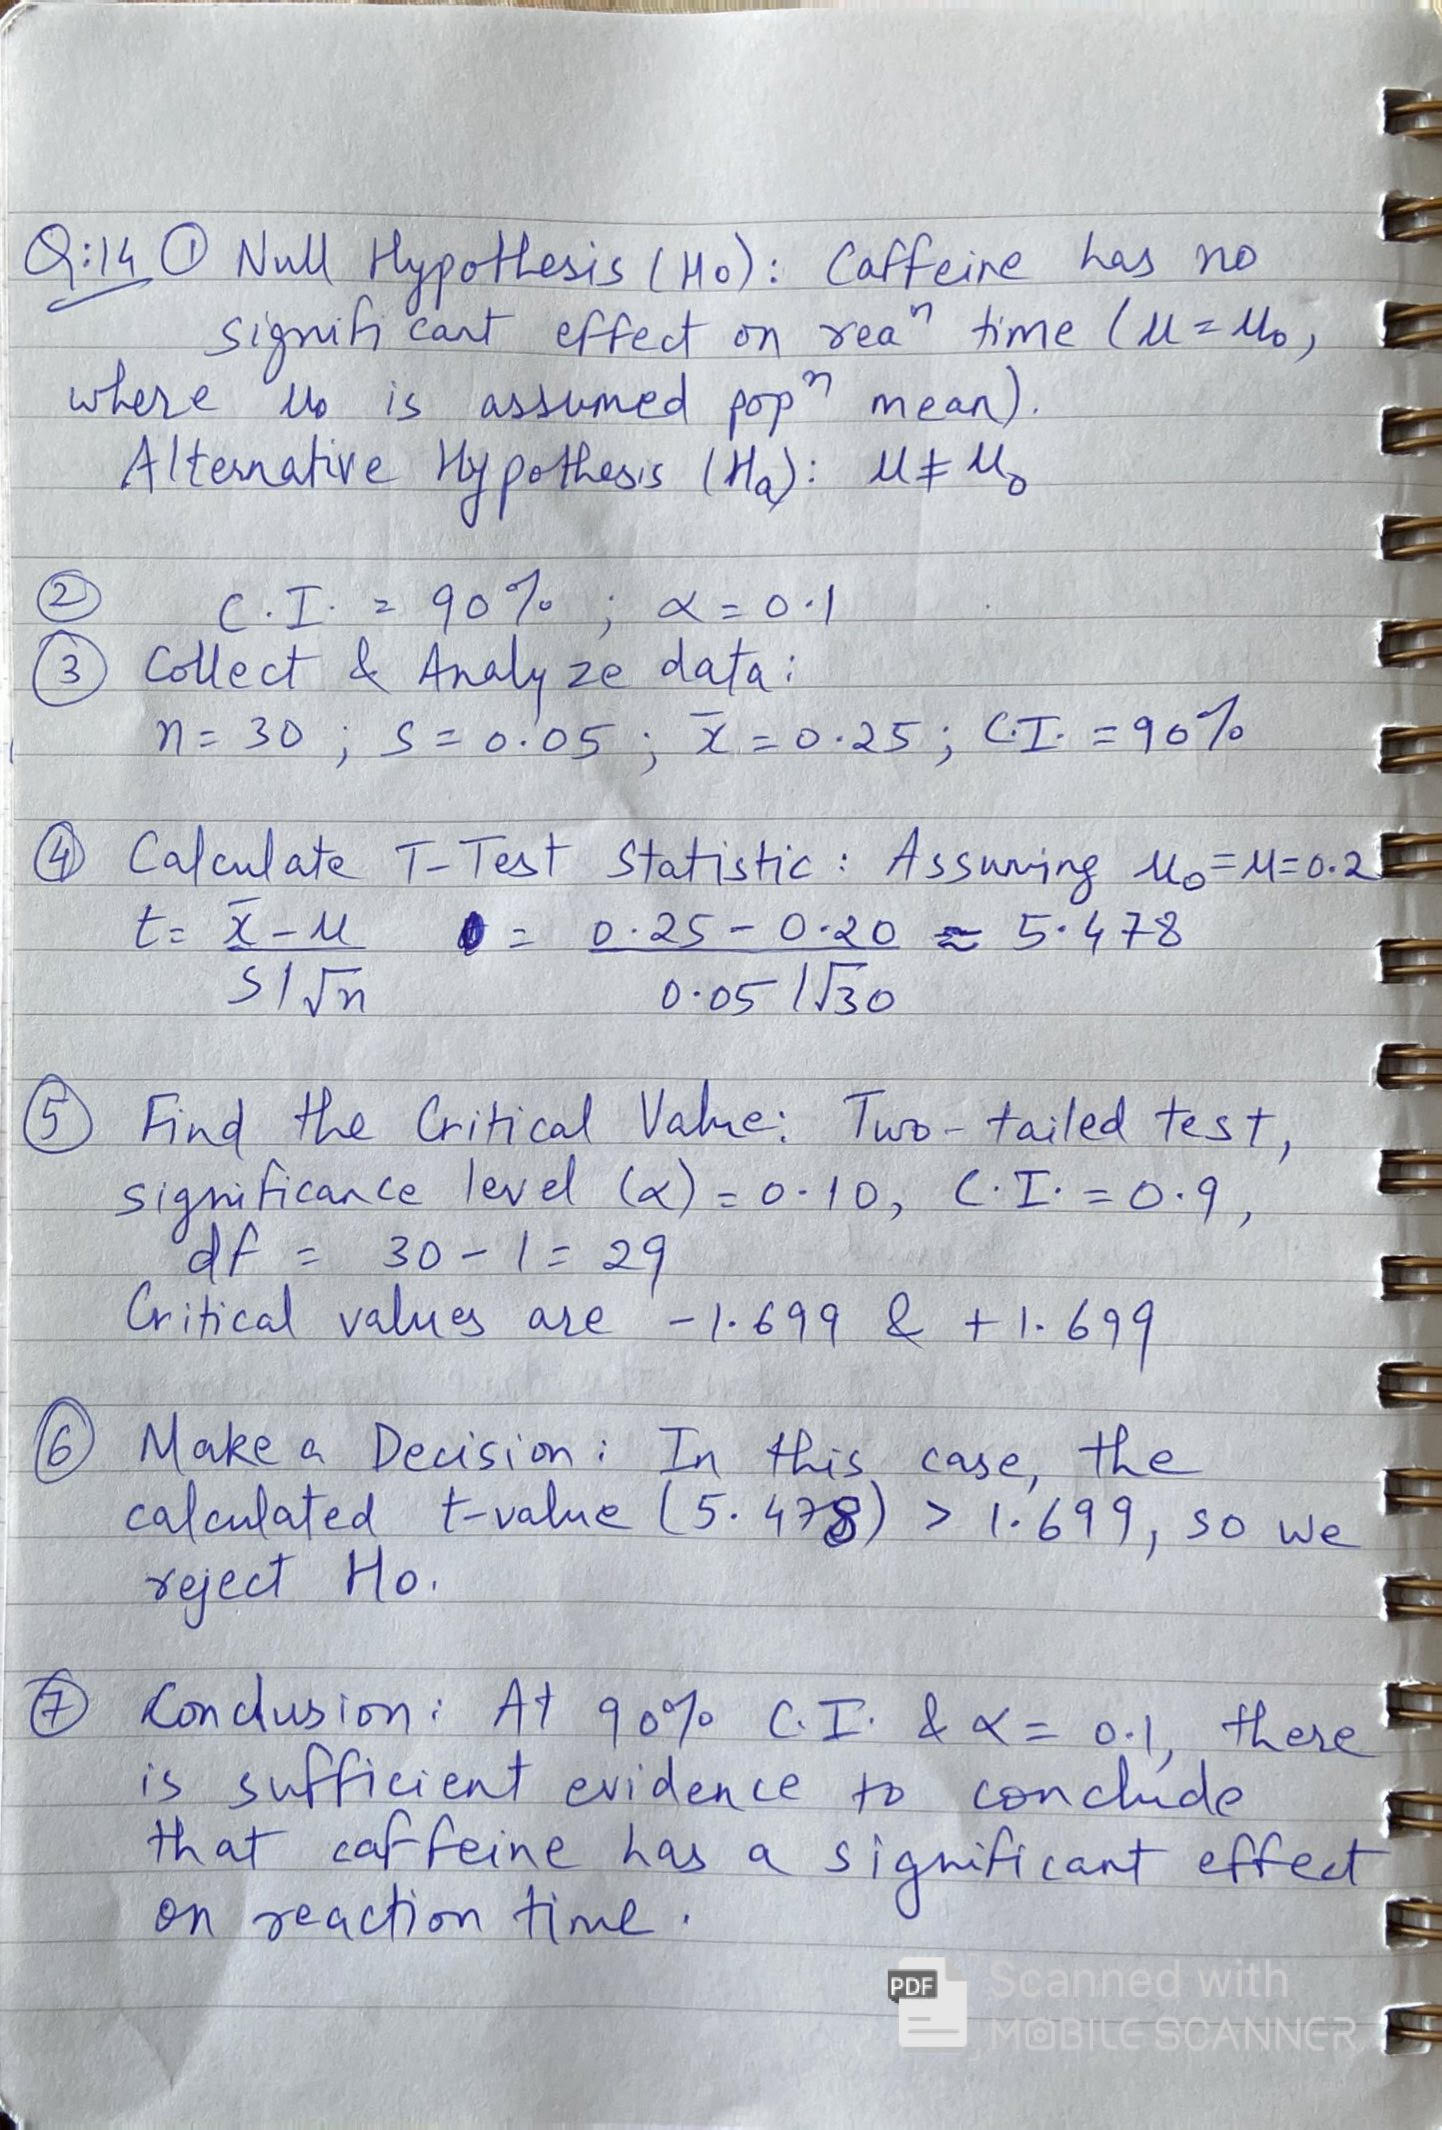 Q:14 ① Null Hypothesis (H₀): Caffeine has no
significant effect on reaⁿ time (μ = μ₀,
where μ₀ is assumed popⁿ mean).
Alternative Hypothesis (Hₐ): μ ≠ μ₀
② C.I. = 90% ; α = 0.1
③ Collect & Analyze data:
n = 30 ; S = 0.05 ; x̄ = 0.25 ; C.I. = 90%
④ Calculate T-Test Statistic: Assuming μ₀ = μ = 0.2
t = x̄ - μ / S/√n = 0.25 - 0.20 / 0.05/√30 ≈ 5.478
⑤ Find the Critical Value: Two-tailed test,
significance level (α) = 0.10, C.I. = 0.9,
df = 30 - 1 = 29
Critical values are -1.699 & +1.699
⑥ Make a Decision: In this case, the
calculated t-value (5.478) > 1.699, so we
reject H₀.
⑦ Conclusion: At 90% C.I. & α = 0.1, there
is sufficient evidence to conclude
that caffeine has a significant effect
on reaction time.
PDF Scanned with
MOBILE SCANNER